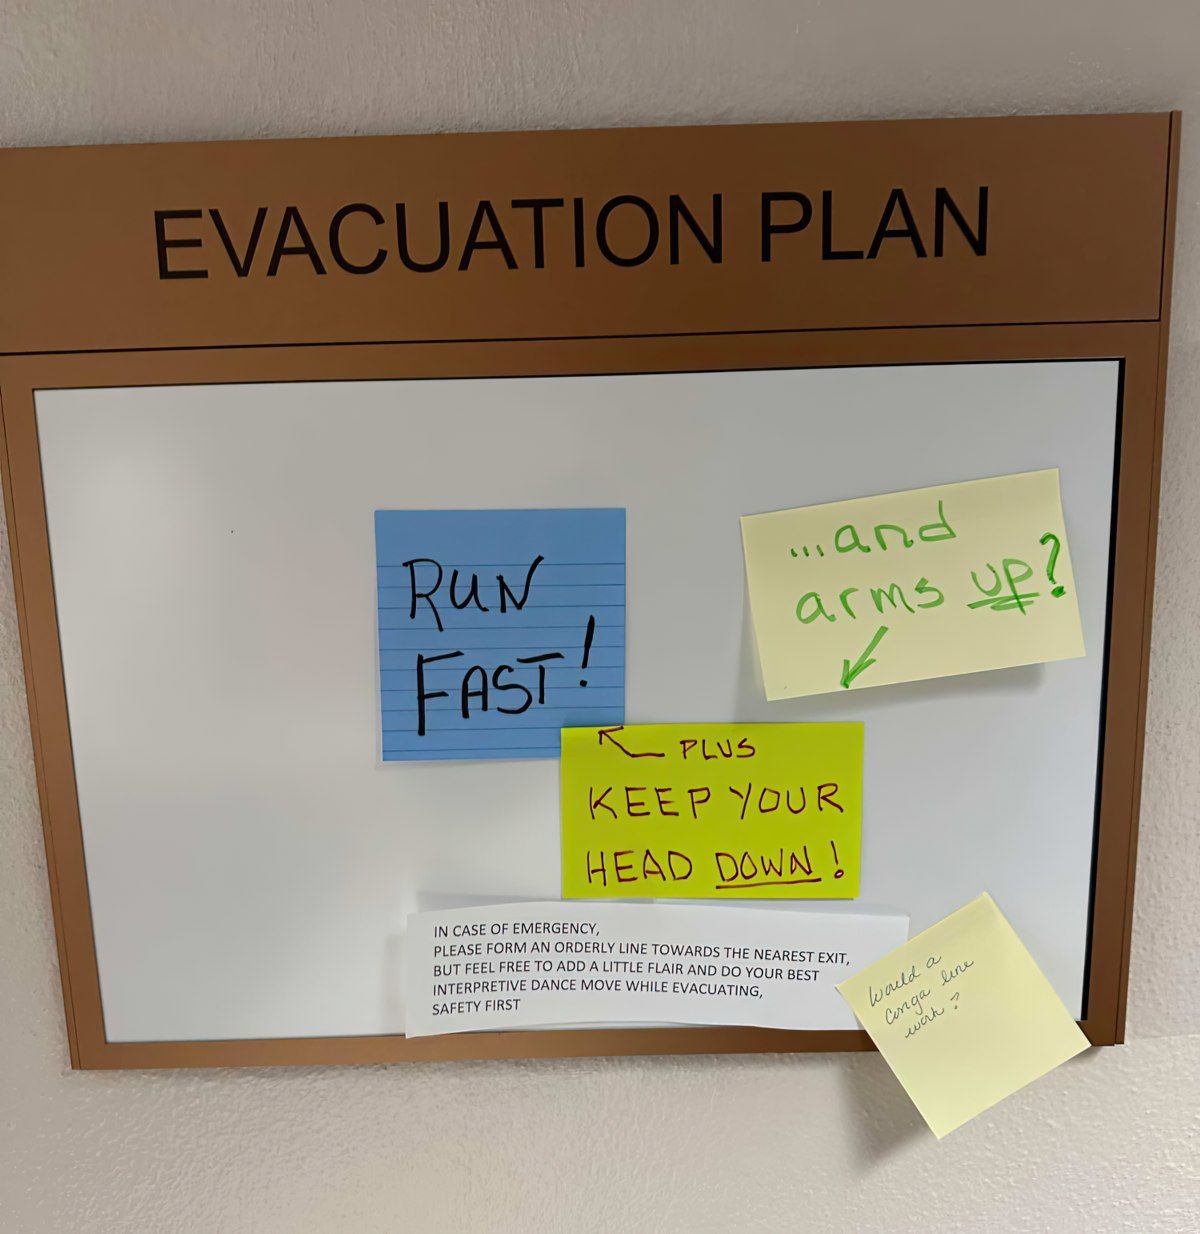 EVACUATION PLAN
RUN
FAST!
...and
arms up?
PLUS
KEEP YOUR
HEAD DOWN!
IN CASE OF EMERGENCY,
PLEASE FORM AN ORDERLY LINE TOWARDS THE NEAREST EXIT,
BUT FEEL FREE TO ADD A LITTLE FLAIR AND DO YOUR BEST
INTERPRETIVE DANCE MOVE WHILE EVACUATING,
SAFETY FIRST
Would a
conga line
work?